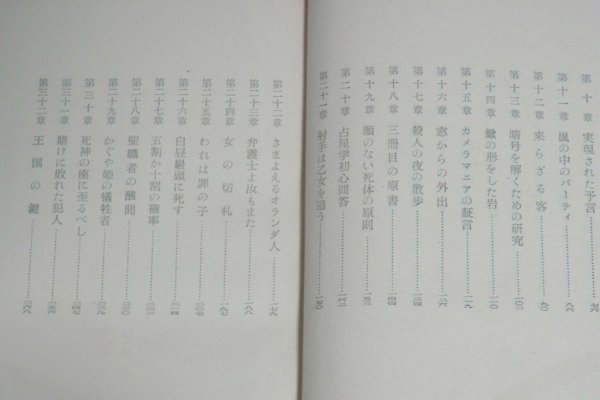 第十章 実現された予言……………七六
第十一章 嵐の中のパーティ……………八六
第十二章 来らざる客……………九〇
第十三章 暗号を解くための研究……………一〇三
第十四章 蠍の形をした岩……………一一〇
第十五章 カメラマニアの証言……………一一九
第十六章 窓からの外出……………
第十七章 殺人の夜の散歩……………
第十八章 三冊目の原書……………一四四
第十九章 顔のない死体の原則……………一五三
第二十章 占星学初心問答……………一六二
第二十一章 射手は乙女を追う……………一七〇
第二十二章 さまよえるオランダ人……………一七九
第二十三章 弁護士よ汝もまた……………一八八
第二十四章 女の切札……………一九七
第二十五章 われは罪の子……………二〇七
第二十六章 白昼銀頭に死す……………二一四
第二十七章 五割か十割の確率……………
第二十八章 聖職者の醜聞……………二三〇
第二十九章 かぐや姫の犠牲者……………二三九
第三十章 死神の座に至るべし……………二四七
第三十一章 賭けに敗れた犯人……………
第三十二章 王国の鍵……………二六八